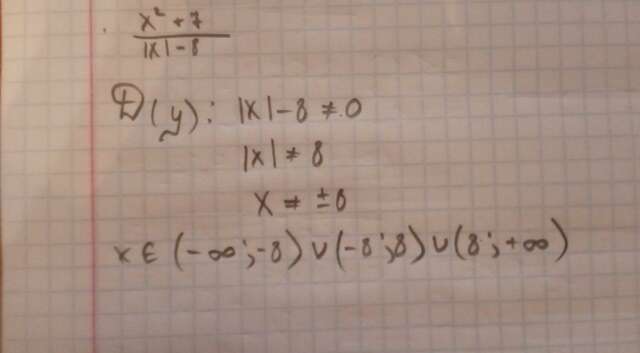 x² + 7
|x| - 8
D(y): |x| - 8 ≠ 0
|x| ≠ 8
x ≠ ±8
x ∈ (-∞; -8) ∪ (-8; 8) ∪ (8; +∞)